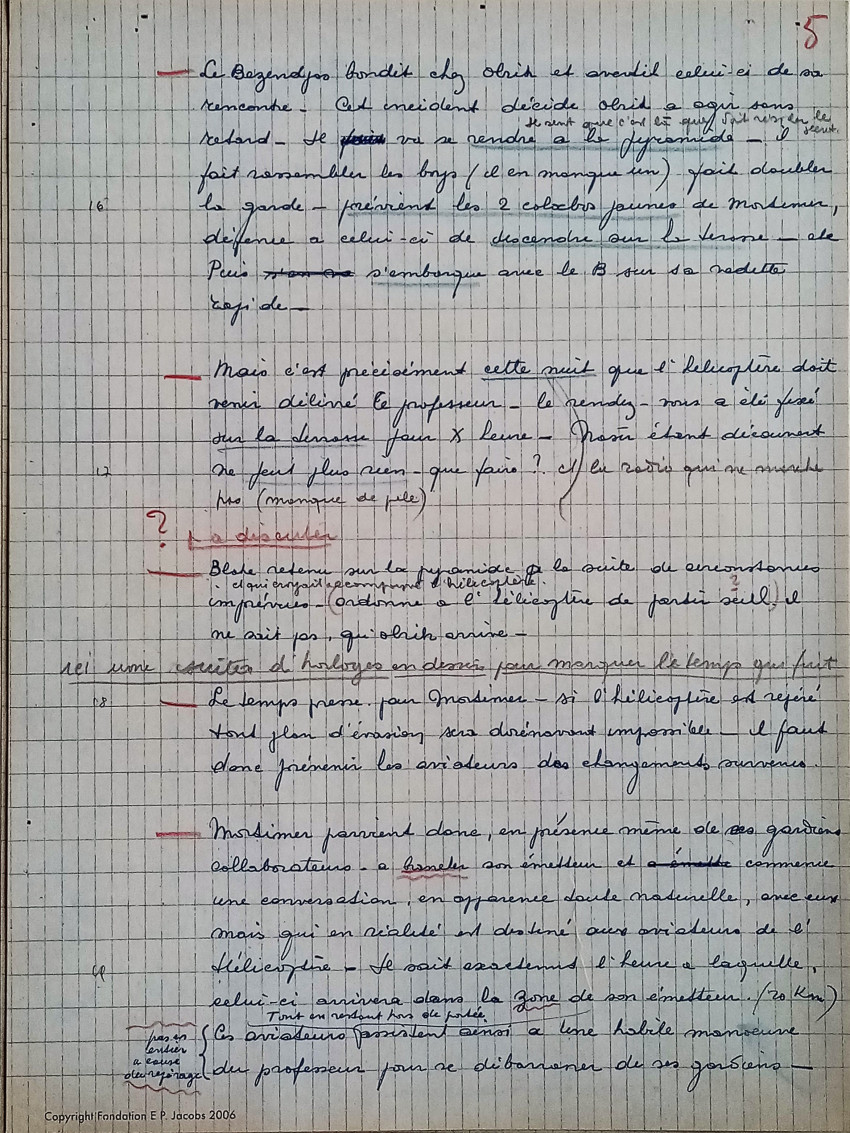 5
— Le Bezendjas bondit chez Olrik et avertit celui-ci de sa
rencontre - Cet incident décide Olrik a agir sans
Il sent que c'est là que doit le secret.
retard - Il va se rendre a la pyramide - il
fait rassembler les boys (il en manque un) fait doubler
16 la garde - prévient les 2 colabos jaunes de Mortimer,
défence a celui-ci de descendre sur la terrasse -
Puis s'embarque avec le B sur sa vedette
rapide -
— Mais c'est précisément cette nuit que l'hélicoptère doit
venir délivré le professeur - le rendez-vous a été fixé
sur la terrasse pour X heure - Nasir étant découvert
17 ne peut plus rien - que faire ? et la radio qui ne marche
pas (manque de pile)
? a discuter
— Blake retenu sur la pyramide a la suite de circonstances
et qui croyait accompagné l'hélicoptère.
imprévues - (ordonne a l'hélicoptère de partir seul) il ?
ne sait pas, qu'olrik arrive -
ici une suite d'horloges en dessin pour marquer le temps qui fuit
18 — Le temps presse pour Mortimer - si l'hélicoptère est repéré
tout plan d'évasion sera dorénavant impossible - il faut
donc prévenir les aviateurs des changements survenus.
— Mortimer parvient donc, en présence même de ses gardiens
collaborateurs - a son émetteur et commence
une conversation, en apparence toute naturelle, avec eux
mais qui en réalité est destiné aux aviateurs de l'
19 Hélicoptère - Il sait exactement l'heure a laquelle,
celui-ci arrivera dans la zone de son émetteur. (20 Km)
Tout en restant hors de portée
Ces aviateurs assistent ainsi a une habile manoeuvre
du professeur pour se débarrasser de ses gardiens -
pas en
entier
a cause
du repérage
Copyright Fondation E P. Jacobs 2006